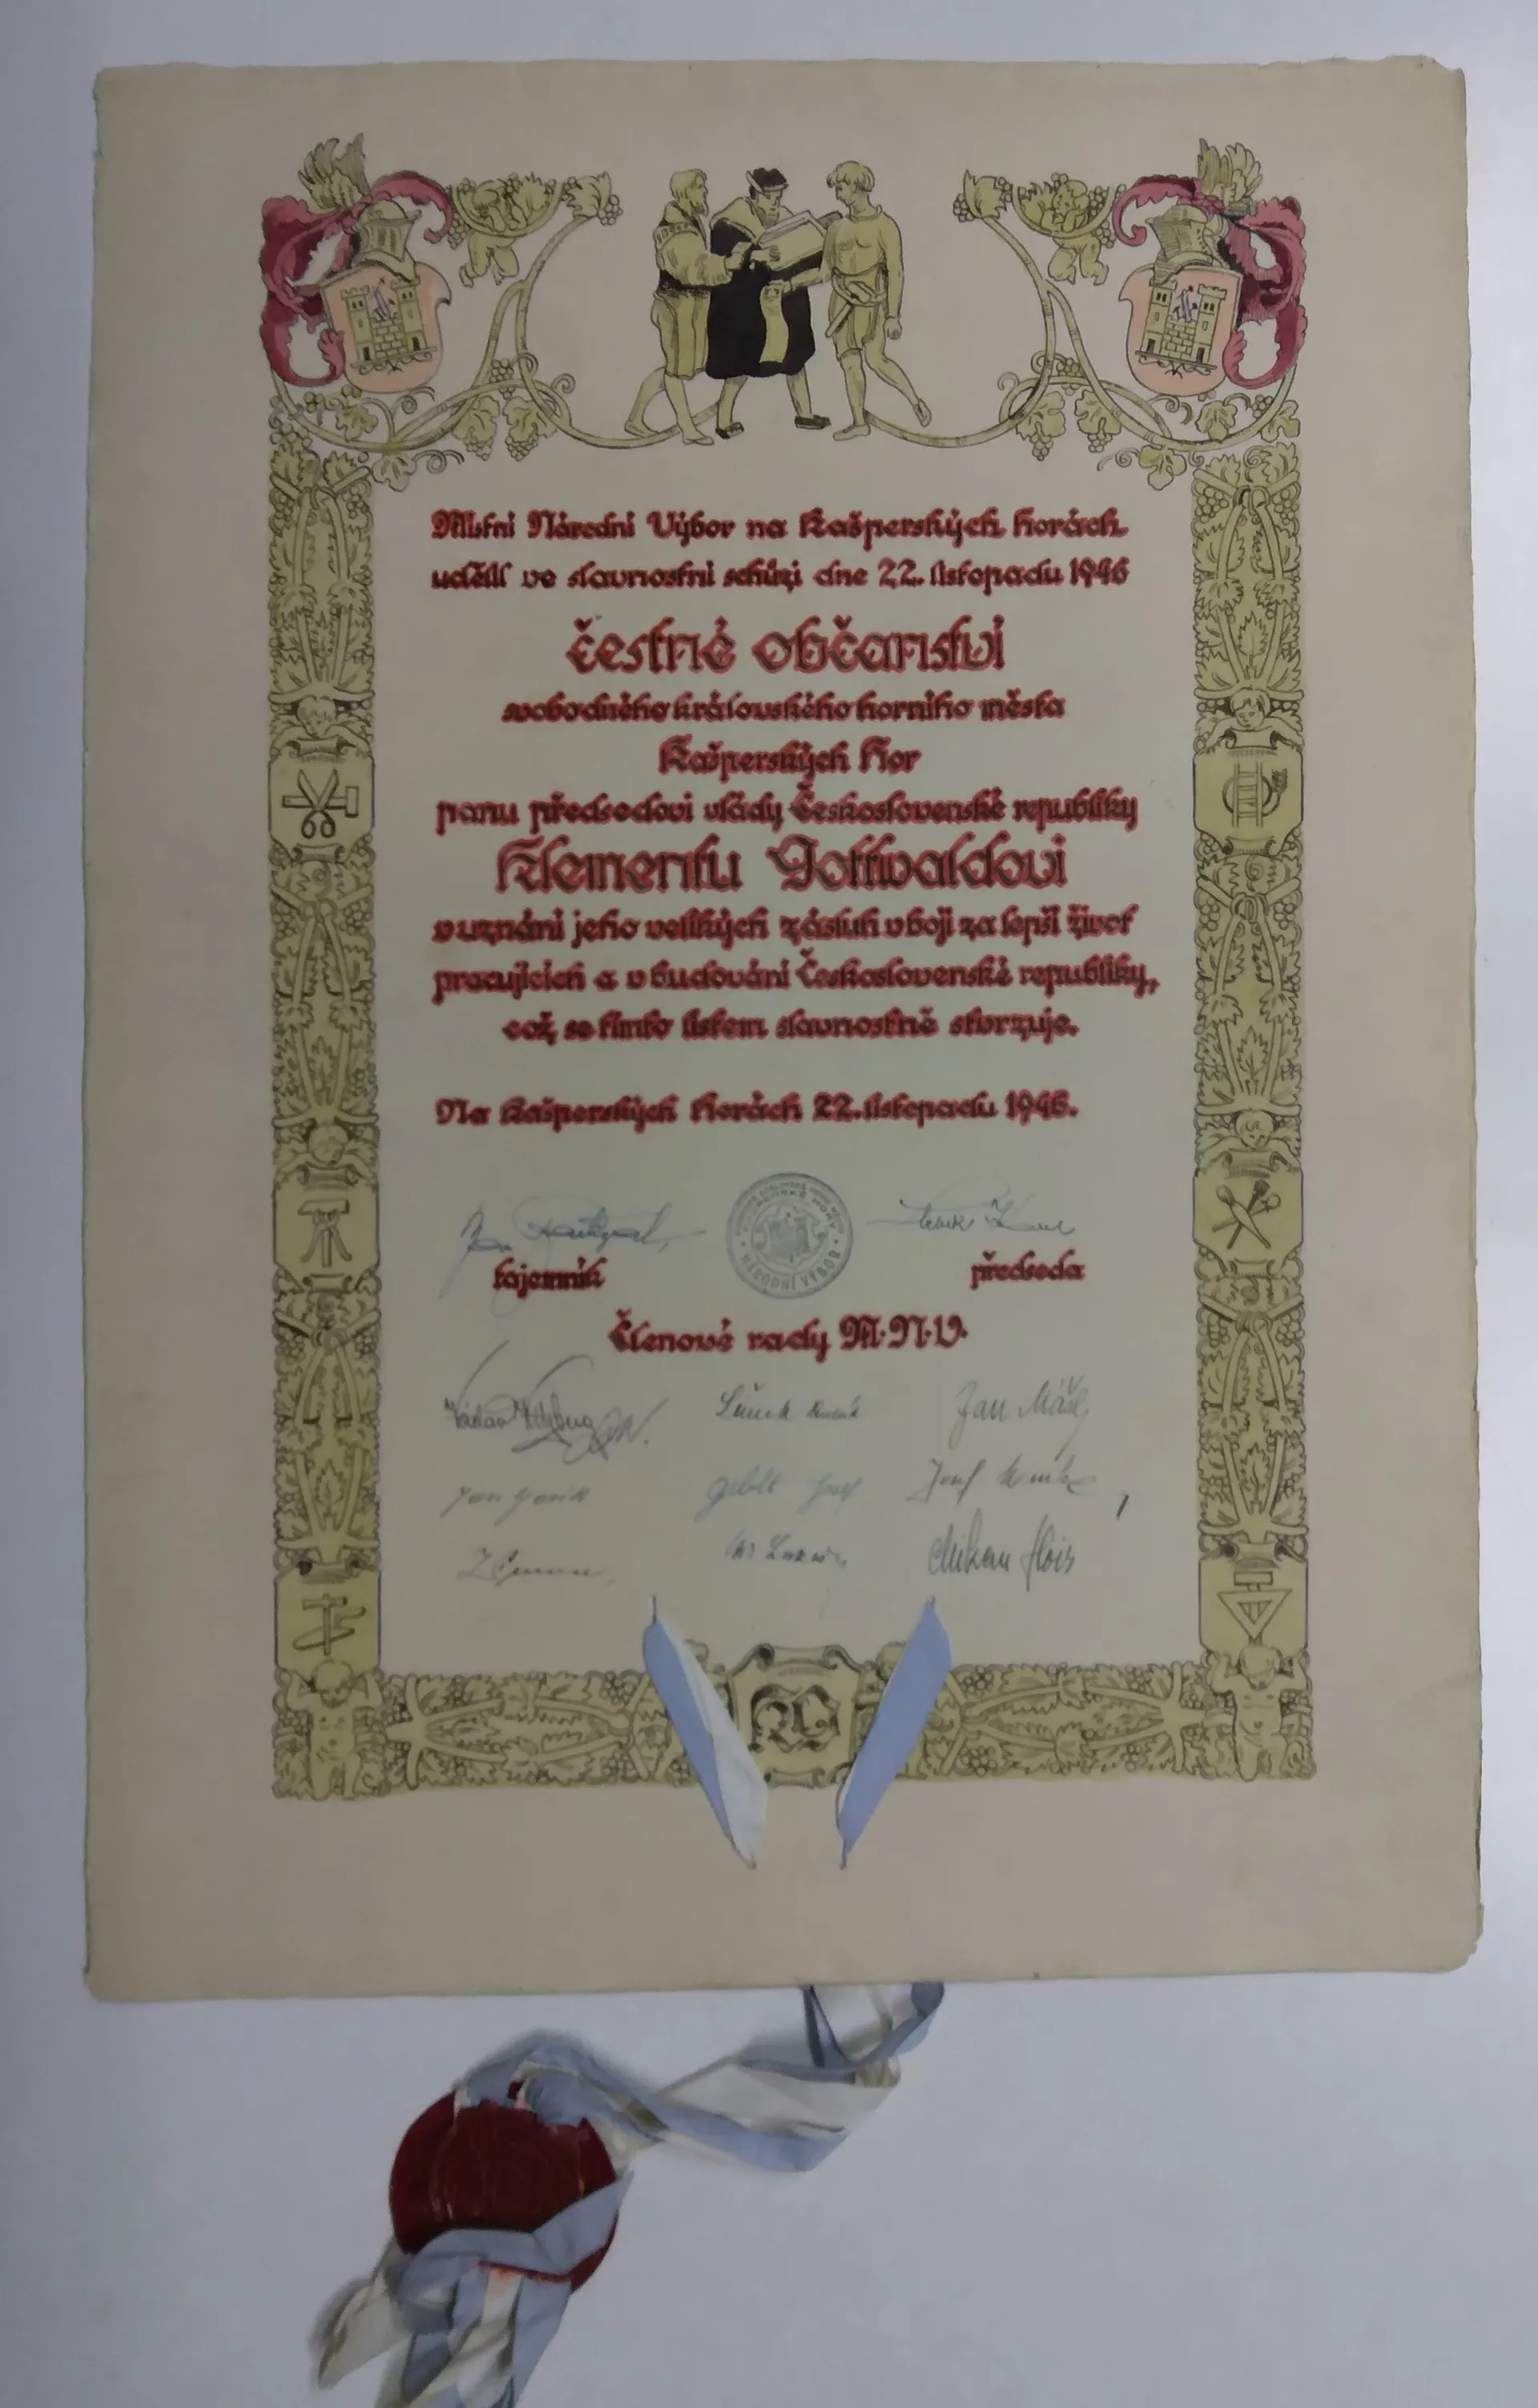 Místní Národní Výbor na Kašperských horách
udělil ve slavnostní schůzi dne 22. listopadu 1946
čestné občanství
svobodného královského horního města
Kašperských Hor
panu předsedovi vlády Československé republiky
Klementu Gottwaldovi
v uznání jeho velikých zásluh v boji za lepší život
pracujících a v budování Československé republiky,
což se tímto listem slavnostně stvrzuje.
Na Kašperských Horách 22. listopadu 1946.
KAŠPERSKÉ HORY
NÁRODNÍ VÝBOR
tajemník předseda
Členové rady M.N.V.
Václav
Jan
Josef